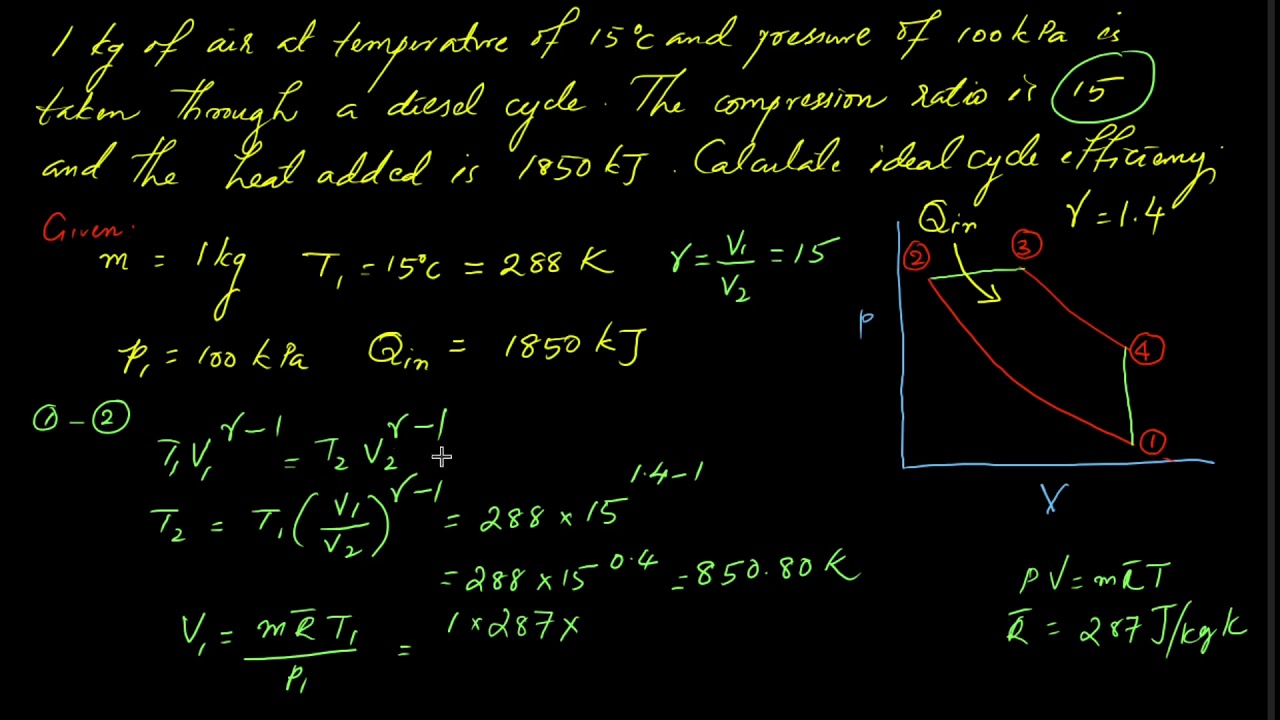 1 kg of air at temperature of 15°c and pressure of 100 kPa is
taken through a diesel cycle. The compression ratio is 15
and the heat added is 1850 kJ. Calculate ideal cycle efficiency.
Given:
m = 1 kg T₁ = 15°c = 288 K r = V₁/V₂ = 15
Qin γ = 1.4
② ③
P
p₁ = 100 kPa Qin = 1850 kJ
④
① - ②
①
T₁V₁^γ-1 = T₂ V₂^γ-1
V
T₂ = T₁(V₁/V₂)^γ-1 = 288 × 15^1.4-1
= 288 × 15^0.4 = 850.80 K
PV = mR̄T
V₁ = mR̄T₁/P₁ = 1 × 287 ×
R̄ = 287 J/kg K